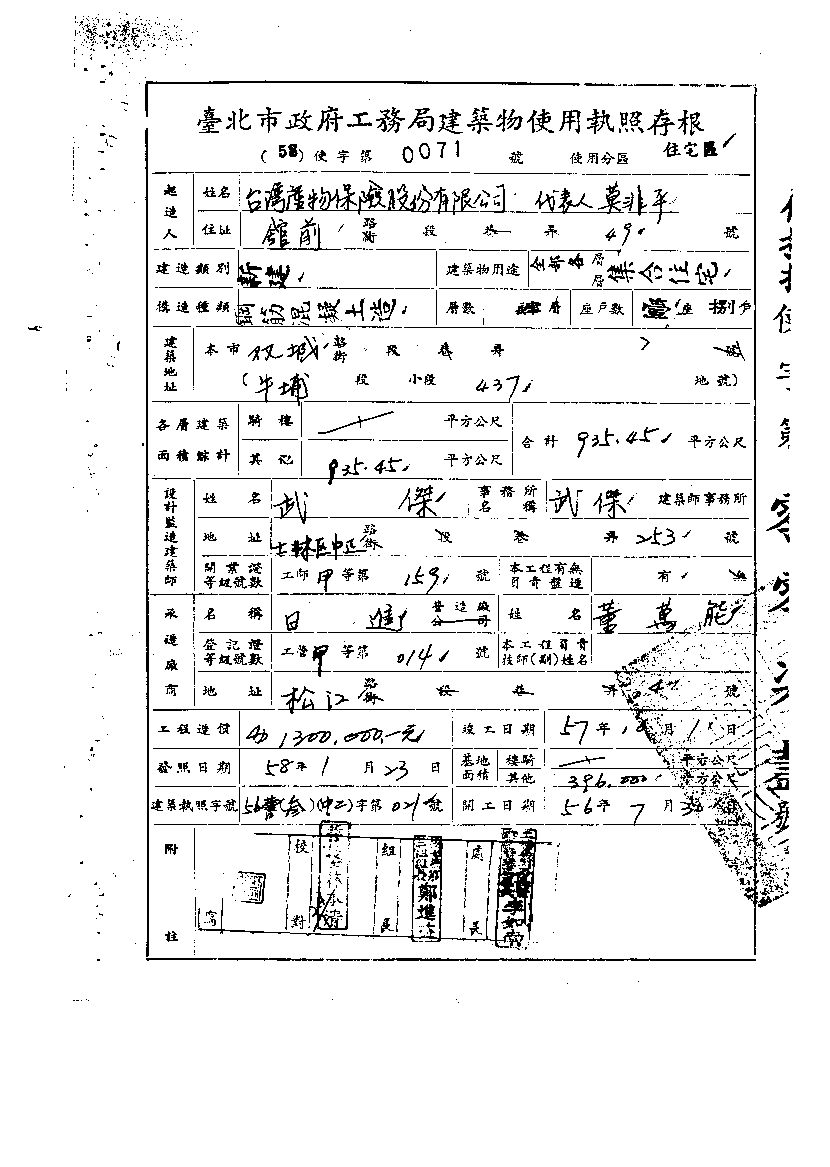 臺北市政府工務局建築物使用執照存根
(58) 使字第 0071 號 使用分區 住宅區
起造人 姓名 台灣產物保險股份有限公司 代表人 莫非平
住址 館前 路街 段 巷 弄 49 號
建造類別 新建 建築物用途 全部各層 層 集合住宅
構造種類 鋼筋混凝土造 層數 層 座戶數 座 捌戶
建築地址 本市 双城 路街 段 巷 弄 7 號
(牛埔 段 小段 437 地號)
各層建築面積綜計 騎樓 平方公尺 合計 935.45 平方公尺
其他 935.45 平方公尺
設計監造建築師 姓名 武傑 事務所名稱 武傑 建築師事務所
地址 士林區中正 路街 段 巷 弄 253 號
開業證等級號數 工師甲等第 159 號 本工程有無負責監造 有 無
承造廠商 名稱 日進 營造廠公司 姓名 董萬能
登記證等級號數 工營甲等第 014 號 本工程負責技師(副)姓名
地址 松江 路街 段 巷 弄 號
工程造價 1300,000.-元 竣工日期 57年 月 1日
發照日期 58年1月23日 基地面積 樓騎 平方公尺
其他 396.000 平方公尺
建築執照字號 56營(叁)(中工)字第 021 號 開工日期 56年7月 日
附註
寫 校對 組長 鄭進 處長 李如南